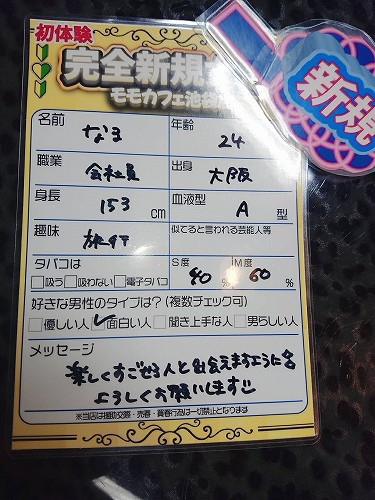 初体験
完全新規
モモカフェ池袋
新規
名前 なる 年齢 24
職業 会社員 出身 大阪
身長 153 cm 血液型 A 型
趣味 旅行 似てると言われる芸能人等
タバコは S度 40 % M度 60 %
□吸う □吸わない □電子タバコ
好きな男性のタイプは?(複数チェック可)
□優しい人 ✓面白い人 □聞き上手な人 □男らしい人
メッセージ
楽しくすごせる人と出会えますように
よろしくお願いします
※当店は援助交際・売春・買春行為は一切禁止となります